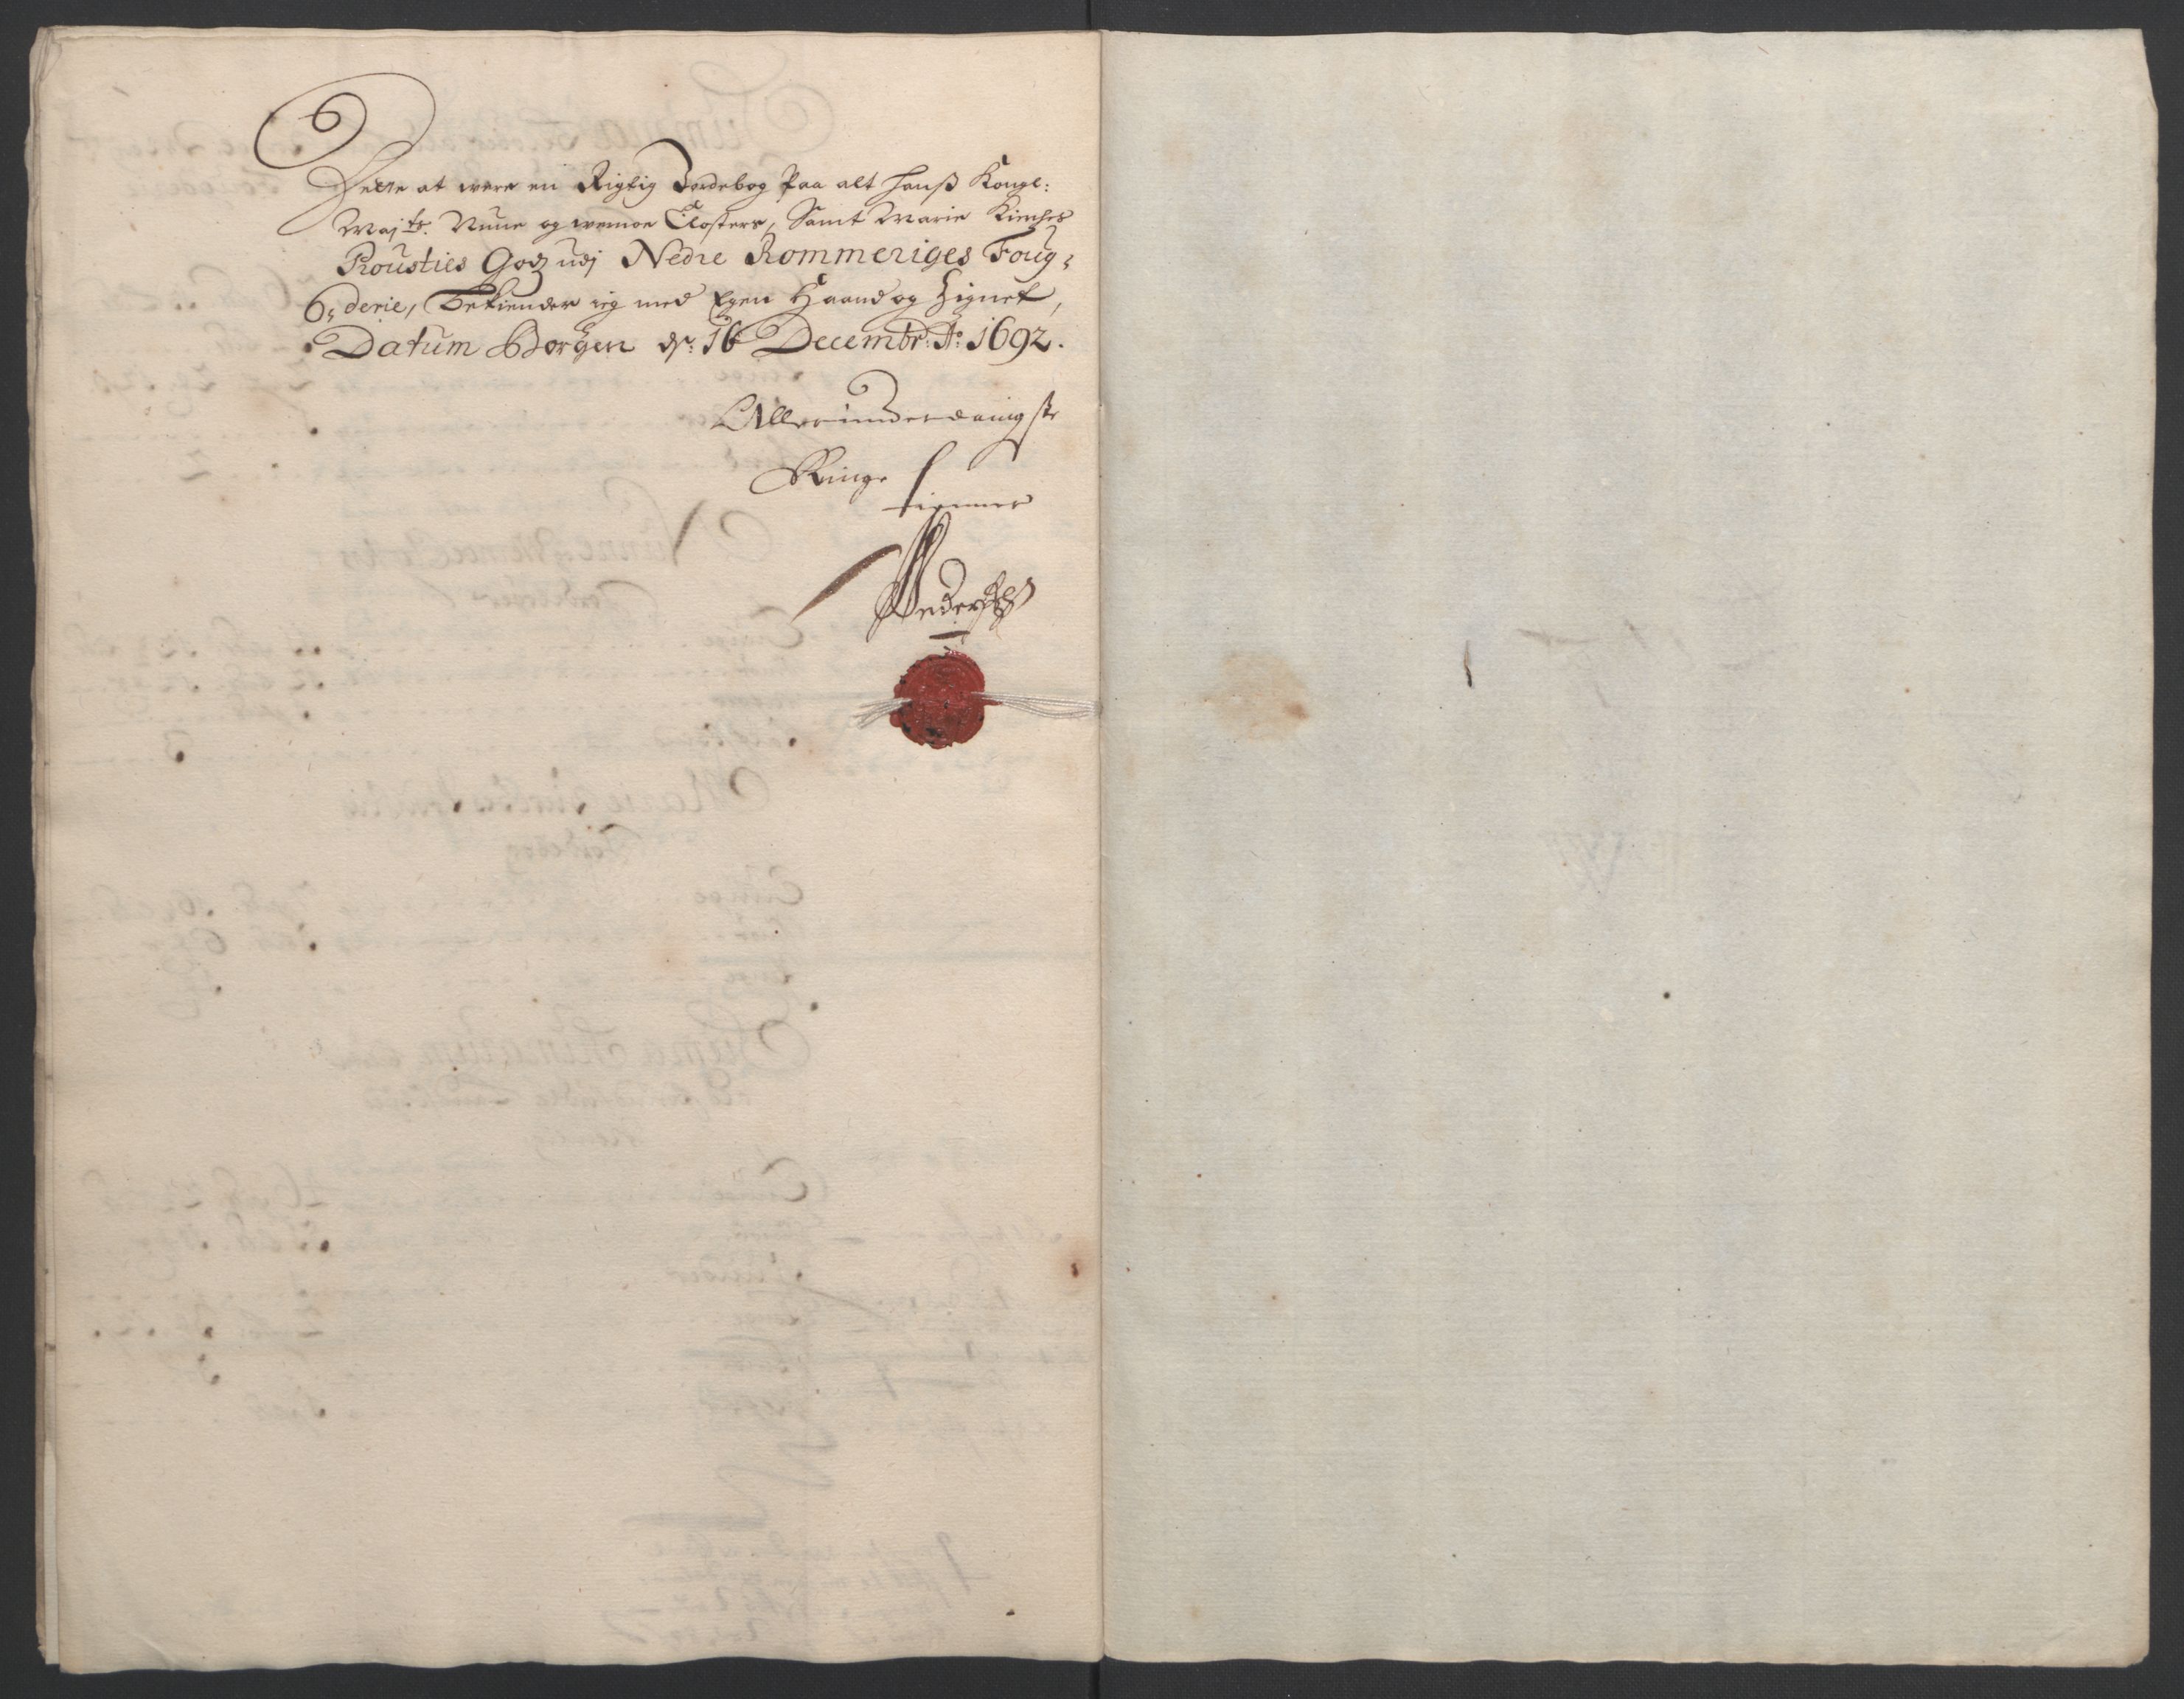 Dette at were en Rigtig Jordebog Paa alt hanß Kongl:
Maj ts. Nunne og wemoe Closters, Samt Marie Kierches
Prousties Godz udj Nedre Rommeriges Foug-
derie, Bekiender ieg med Egen Haand og Zignet,
Datum Borgen d: 16 Decembr: Ao: 1692.
Allerunderdanigste
Ringe
tienner